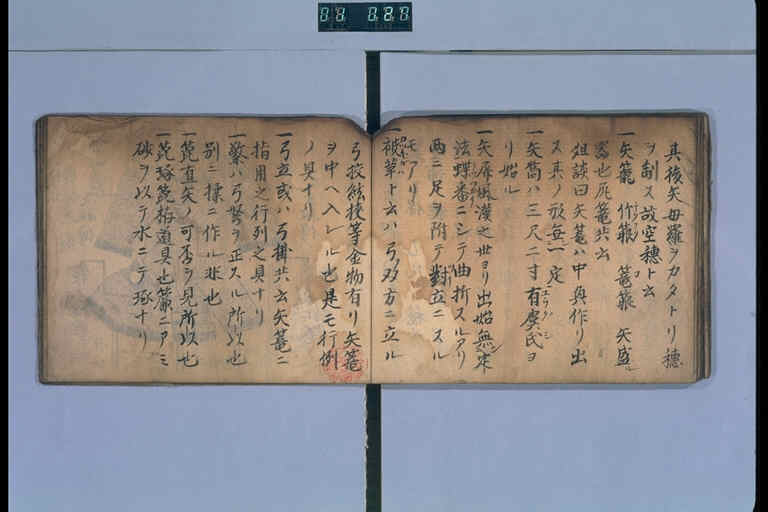 其後矢母羅ヲカタトリ穂
ヲ制ス故空穂ト云
一矢籠 作箙 箙 矢盛
器也 籠共云
俎談曰矢篭ハ中興作リ出
ス其ノ形無一定
一矢篙ハ三尺二寸有虞氏ヲ
リ始ル
一矢屏風漢之世ヨリ出始無定
法蝶番ニシテ曲折スルアリ
両ニ足ヲ附テ對立ニスル
モアリ
一被革ト云ハ弓双方ニ立ル
弓投絃挟等金物有リ矢篭
ヲ中ヘ入レル也是モ行例
ノ具ナリ
一弓立或ハ弓掛共云矢篭ニ
指用之行列之具ナリ
一檠ハ弓弩ヲ正スル所以也
別ニ檪ニ作ル非也
一箆直矢ノ可否ヲ見所以也
一箆琢箆揩道具也簾ニアミ
砂ヲ以テ水ニテ琢ナリ